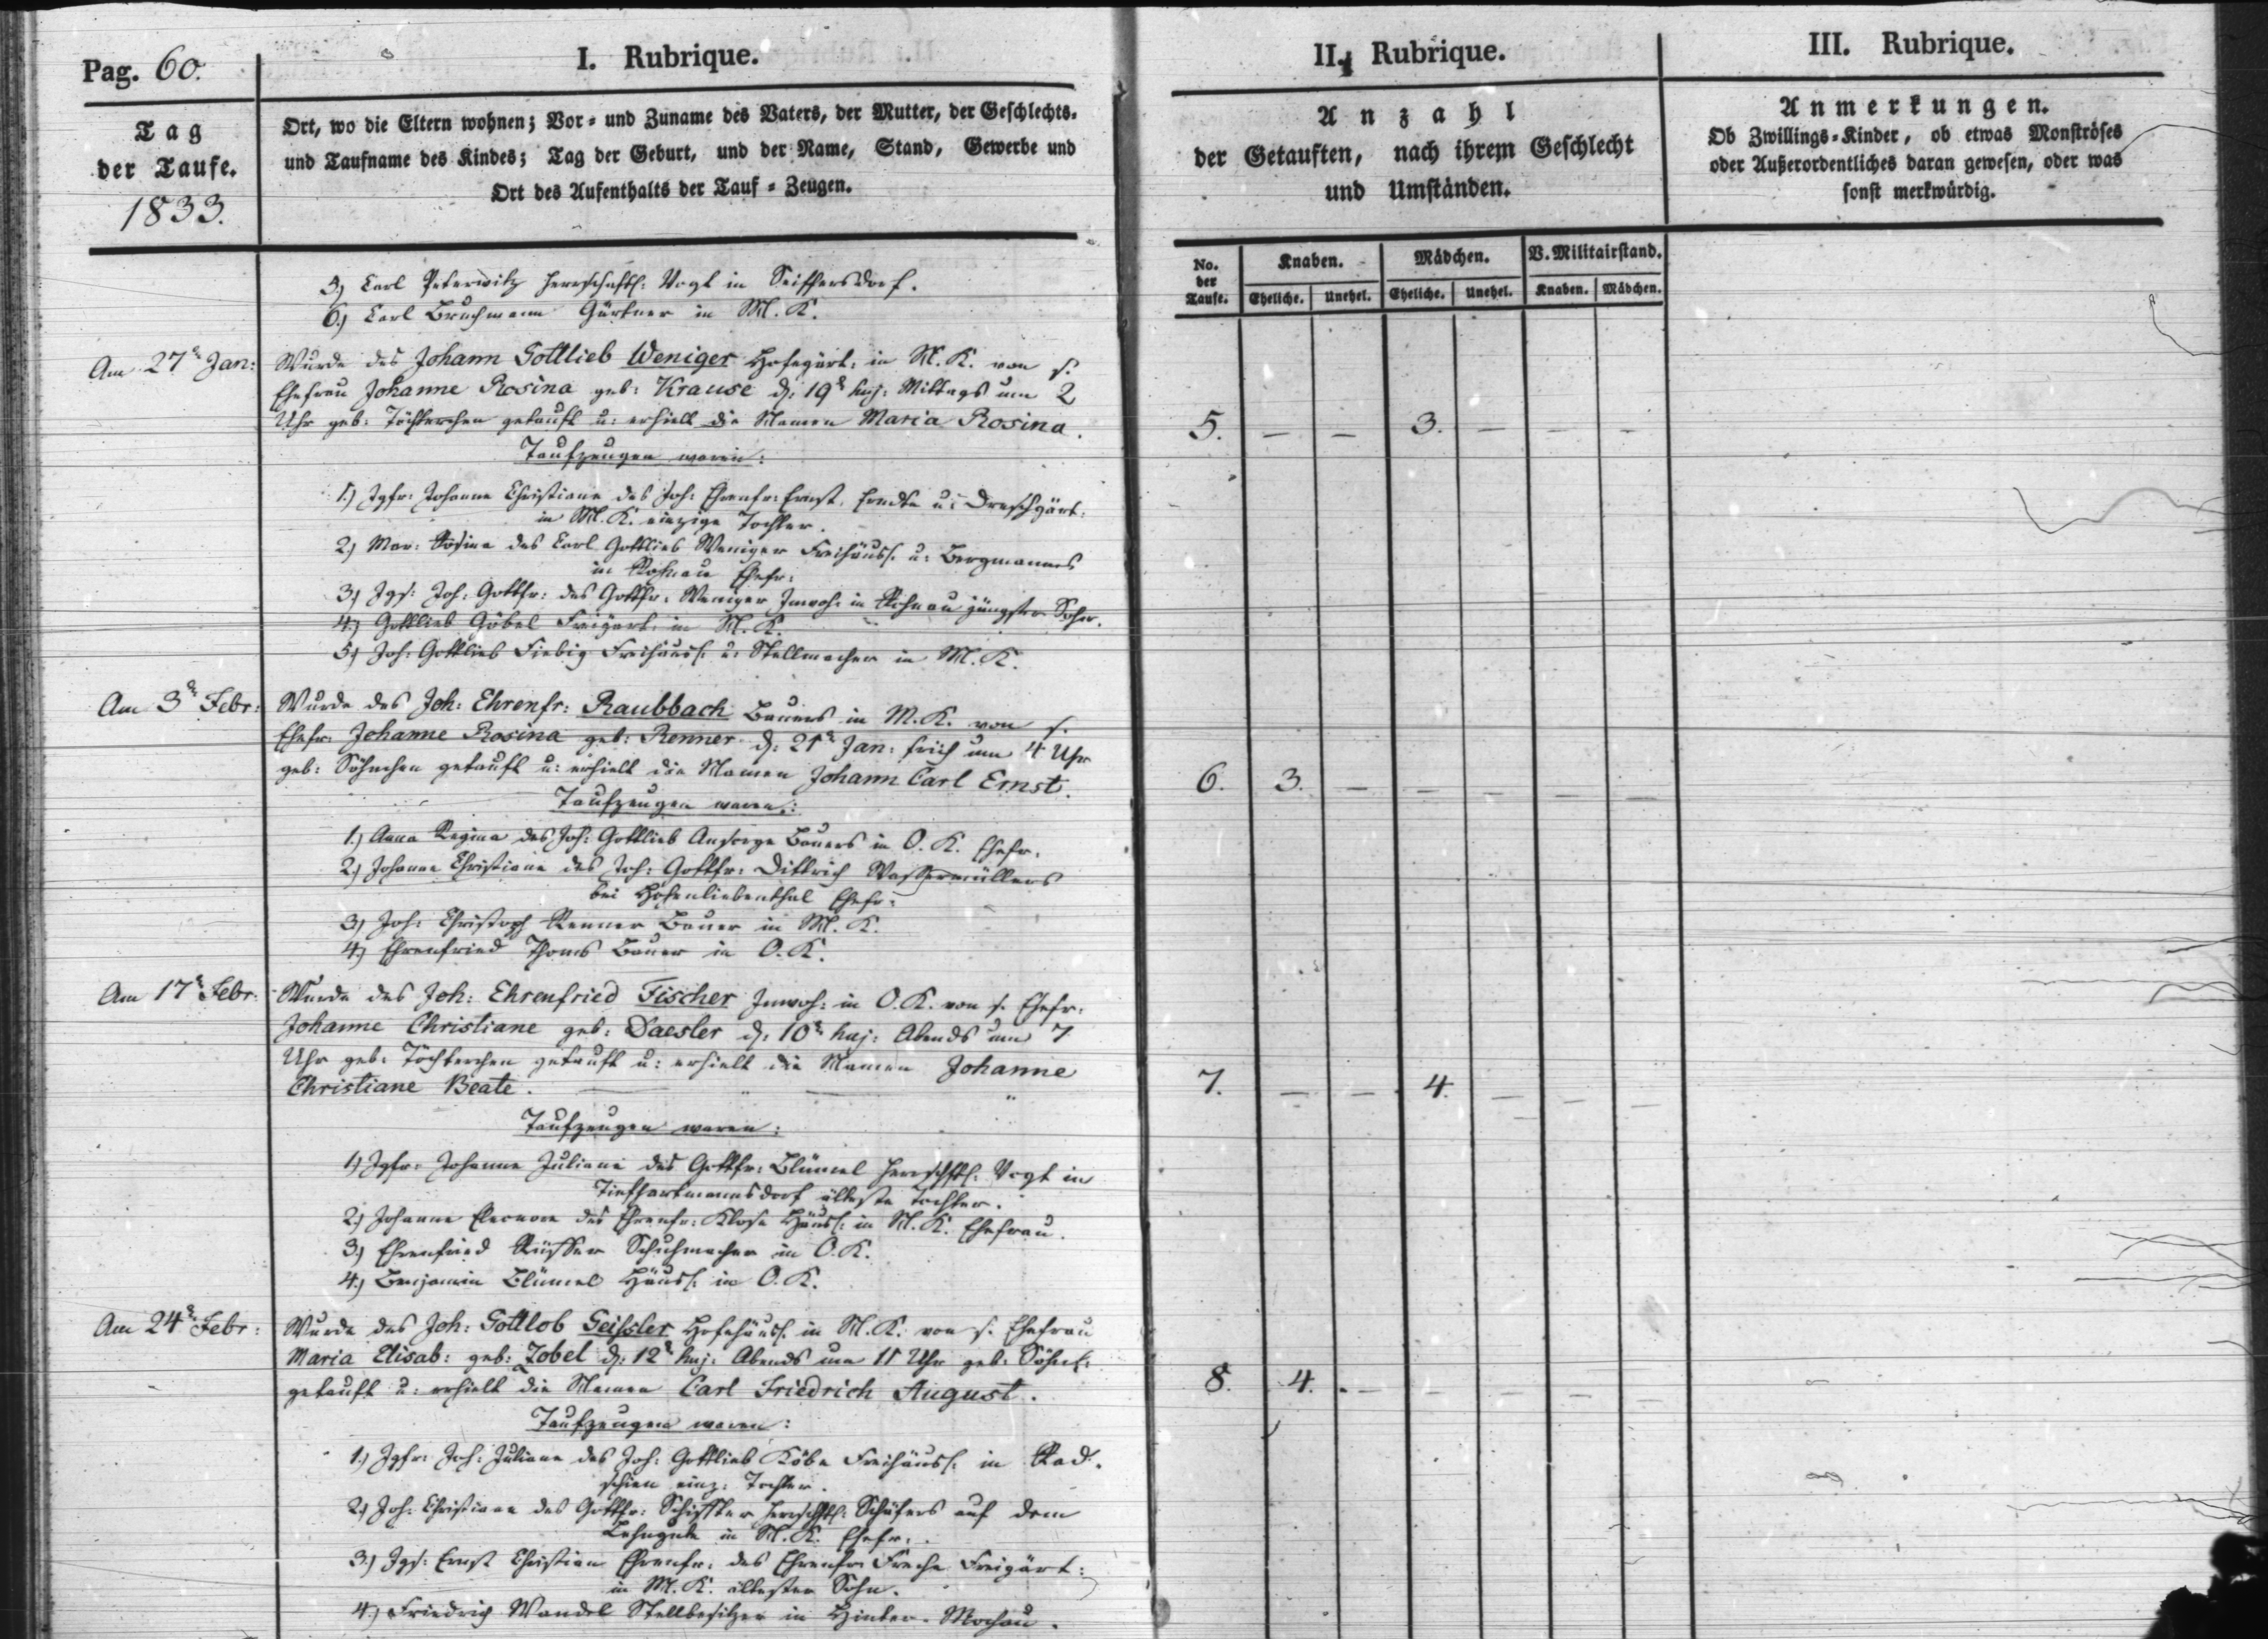 Pag. 60.
I. Rubrique.
II. Rubrique.
III. Rubrique.
Tag
der Taufe.
1833.
Ort, wo die Eltern wohnen; Vor- und Zuname des Vaters, der Mutter, der Geschlechts-
und Taufname des Kindes; Tag der Geburt, und der Name, Stand, Gewerbe und
Ort des Aufenthalts der Tauf-Zeugen.
Anzahl
der Getauften, nach ihrem Geschlecht
und Umständen.
Anmerkungen.
Ob Zwillings-Kinder, ob etwas Monströses
oder Außerordentliches daran gewesen, oder was
sonst merkwürdig.
No. der Taufe.
Knaben. Mädchen. V. Militairstand.
Eheliche. Unehel. Eheliche. Unehel. Knaben. Mädchen.
5.) Carl Peterwitz herrschaftl: Vogt in Seiffersdorf.
6.) Carl Bruchmann Gärtner in M. K.
Am 27t Jan: Wurde des Johann Gottlieb Weniger Hofegärt: in M. K. von s.
Ehefrau Johanne Rosina geb: Krause d: 19t huj: Mittags um 2
Uhr geb: Töchterchen getauft u: erhielt die Namen Maria Rosina. 5. — — 3. — — —
Taufzeugen waren:
1.) Jgfr: Johanne Christiane des Joh: Ehrenfr: Ernst u: Dreschgärt:
in M. K. einzige Tochter.
2.) Mar: Rosina des Carl Gottlieb Weniger Freihäusl. u: Bergmannes
in Rohnau Ehefr:
3.) Jgs: Joh: Gottfr: des Gottfr: Weniger Inwoh: in Rohnau jüngster Sohn.
4.) Gottlieb Göbel Freigärt: in M. K.
5.) Joh: Gottlieb Fiebig Freihäusl. u: Stellmacher in M. K.
Am 3t Febr: Wurde des Joh: Ehrenfr: Raubbach Bauers in M. K. von s.
Ehefr: Johanne Rosina geb: Renner d: 21t Jan: früh um 4 Uhr
geb: Söhnchen getauft u: erhielt die Namen Johann Carl Ernst. 6. 3. — — — — —
Taufzeugen waren:
1.) Anna Regina des Joh: Gottlieb Ansorge Bauers in O. K. Ehefr:
2.) Johanne Christiane des Joh: Gottfr: Dittrich Wassermüllers
bei Hohenliebenthal Ehefr:
3.) Joh: Christoph Renner Bauer in M. K.
4.) Ehrenfried Thoms Bauer in O. K.
Am 17t Febr: Wurde des Joh: Ehrenfried Fischer Inwoh: in O. K. von s. Ehefr:
Johanne Christiane geb: Daesler d: 10t huj: Abends um 7
Uhr geb: Töchterchen getauft u: erhielt die Namen Johanne
Christiane Beate. 7. — — 4. — — —
Taufzeugen waren:
1.) Jgfr: Johanne Juliane des Gottfr: Blümel herrschftl: Vogt in
Tiefhartmannsdorf älteste Tochter.
2.) Johanne Eleonore des Ehrenfr: Klose Häusl: in M. K. Ehefrau.
3.) Ehrenfried Schuhmacher in O. K.
4.) Benjamin Blümel Häusl: in O. K.
Am 24t Febr: Wurde des Joh: Gottlob Geißler Hofehäusl. in M. K. von s. Ehefrau
Maria Elisab: geb: Zobel d: 12t huj: Abends um 11 Uhr geb: Söhnl:
getauft u: erhielt die Namen Carl Friedrich August. 8. 4. — — — — —
Taufzeugen waren:
1.) Jgfr: Joh: Juliane des Joh: Gottlieb Freihäusl. in Rad-
schien einz: Tochter.
2.) Joh: Christiane des Gottfr: herrschftl: Schäfers auf dem
Lehngute in M. K. Ehefr:
3.) Jgs: Ernst Christian Ehrenfr: des Ehrenfr: Freche Freigärt:
in M. K. ältester Sohn.
4.) Friedrich Wandel Stellbesitzer in Hinter-Mochau.